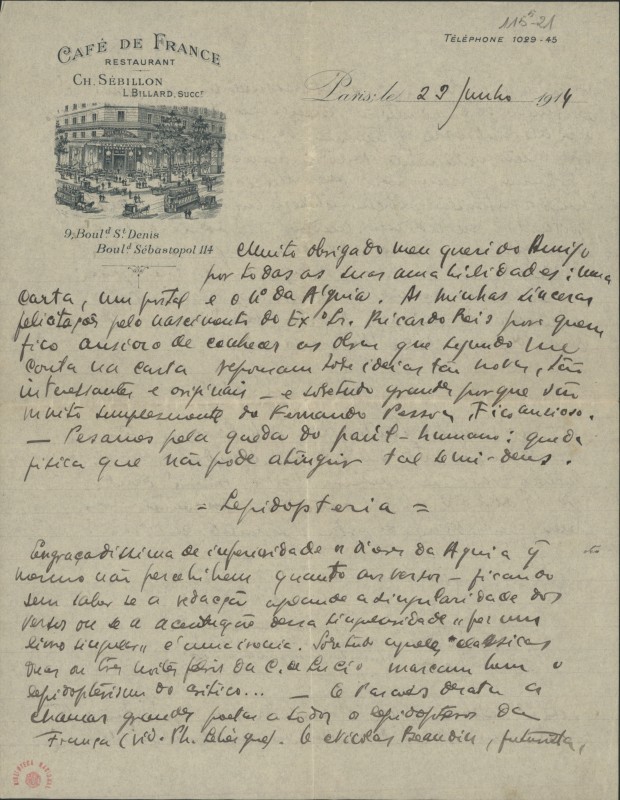 115⁵-21
CAFÉ DE FRANCE
RESTAURANT
CH. SÉBILLON
L. BILLARD, SUCCR
TÉLÉPHONE 1029-45
Paris, le 23 Junho 1914
9, Bould St Denis
Bould Sébastopol 114
Muito obrigado meu querido Amigo
por todas as suas amabilidades: uma
carta, um postal e o nº da Aguia. As minhas sinceras
felicitações pelo nascimento do Exmo Sr. Ricardo Reis por quem
fico ansioso de conhecer as obras que segundo me
conta na carta repousam sobre ideias tão novas, tão
interessantes e originais — e sobretudo grandes porque vêm
muito simplesmente do Fernando Pessoa. Fico ancioso.
— Pesames pela queda do paúl-humano: queda
fisica que não pode atingir tal semi-deus.
= Lepidopteria =
Engraçadissima de inferioridade a da Aguia q
mesmo não percebi bem quanto aos versos — ficando
sem saber se a redacção aponta a singularidade dos
versos ou se a acentuação dessa singularidade "por um
livro singular" é uma ironia. Sobretudo aquelas "classicas
duas ou tres noites febris da C. de Lucio" marcam bem o
lepidopterismo do critico... —
chamar grandes poetas a todos os lepidopteros da
França (vid. Ph. Lebesgue). O Nicolas Beauduin, futurista,
BIBLIOTECA NACIONAL